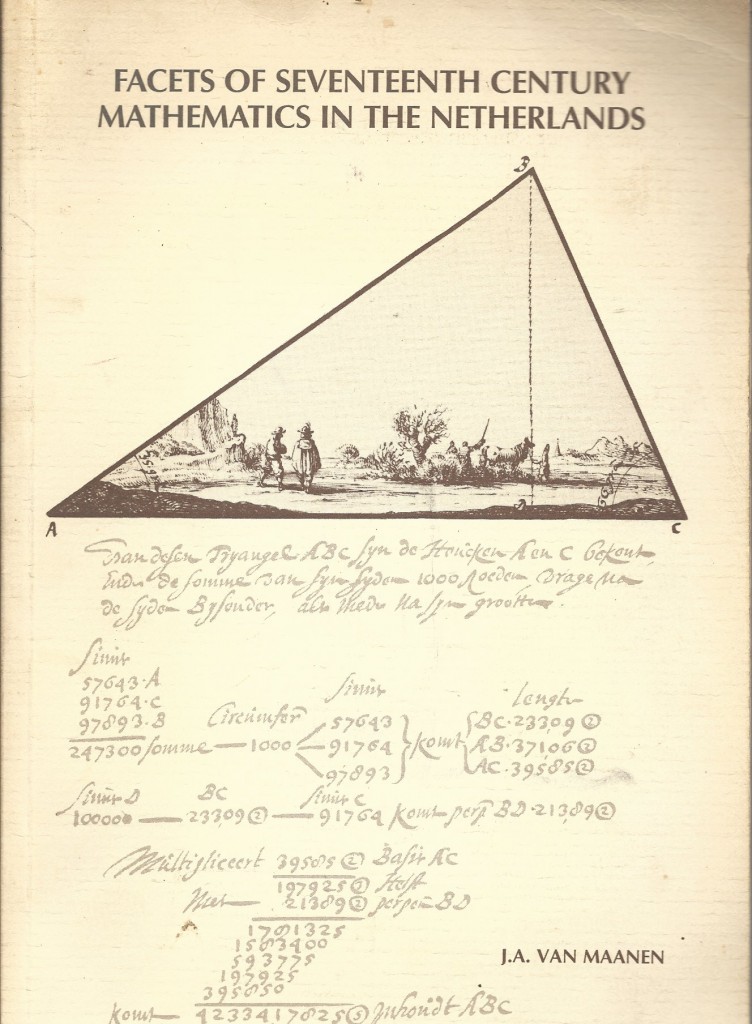 FACETS OF SEVENTEENTH CENTURY
MATHEMATICS IN THE NETHERLANDS
B
A
D
C
Van desen Tryangel ABC syn de Houcken A en C bekent,
de somme van syn syden 1000 Roeden, vrage na
de syden Bysonder, als mede na syn grootte.
Sinus
57643·A
91764·C
97893·B
247300 somme — 1000
Circumfer
Sinus
57643
91764
97893
komt
Lengte
BC·23309②
AB·37106②
AC·39585②
Sinus D
BC
Sinus C
100000 — 23309② — 91764 komt perp BD·21389②
Multipliceert 39585② Basis AC
197925③ Helft
Met 21389② perpen BD
1781325
1583400
593775
197925
395850
komt 4233417825⑤ Inhoudt ABC
J.A. VAN MAANEN